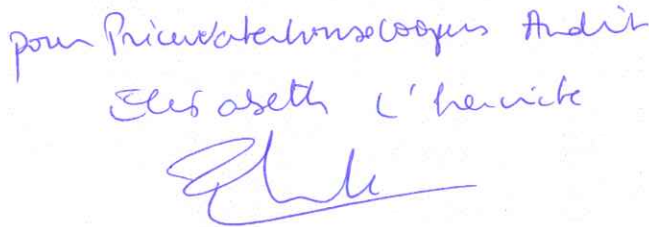 pour PricewaterhouseCoopers Audit
Elisabeth L'hermite